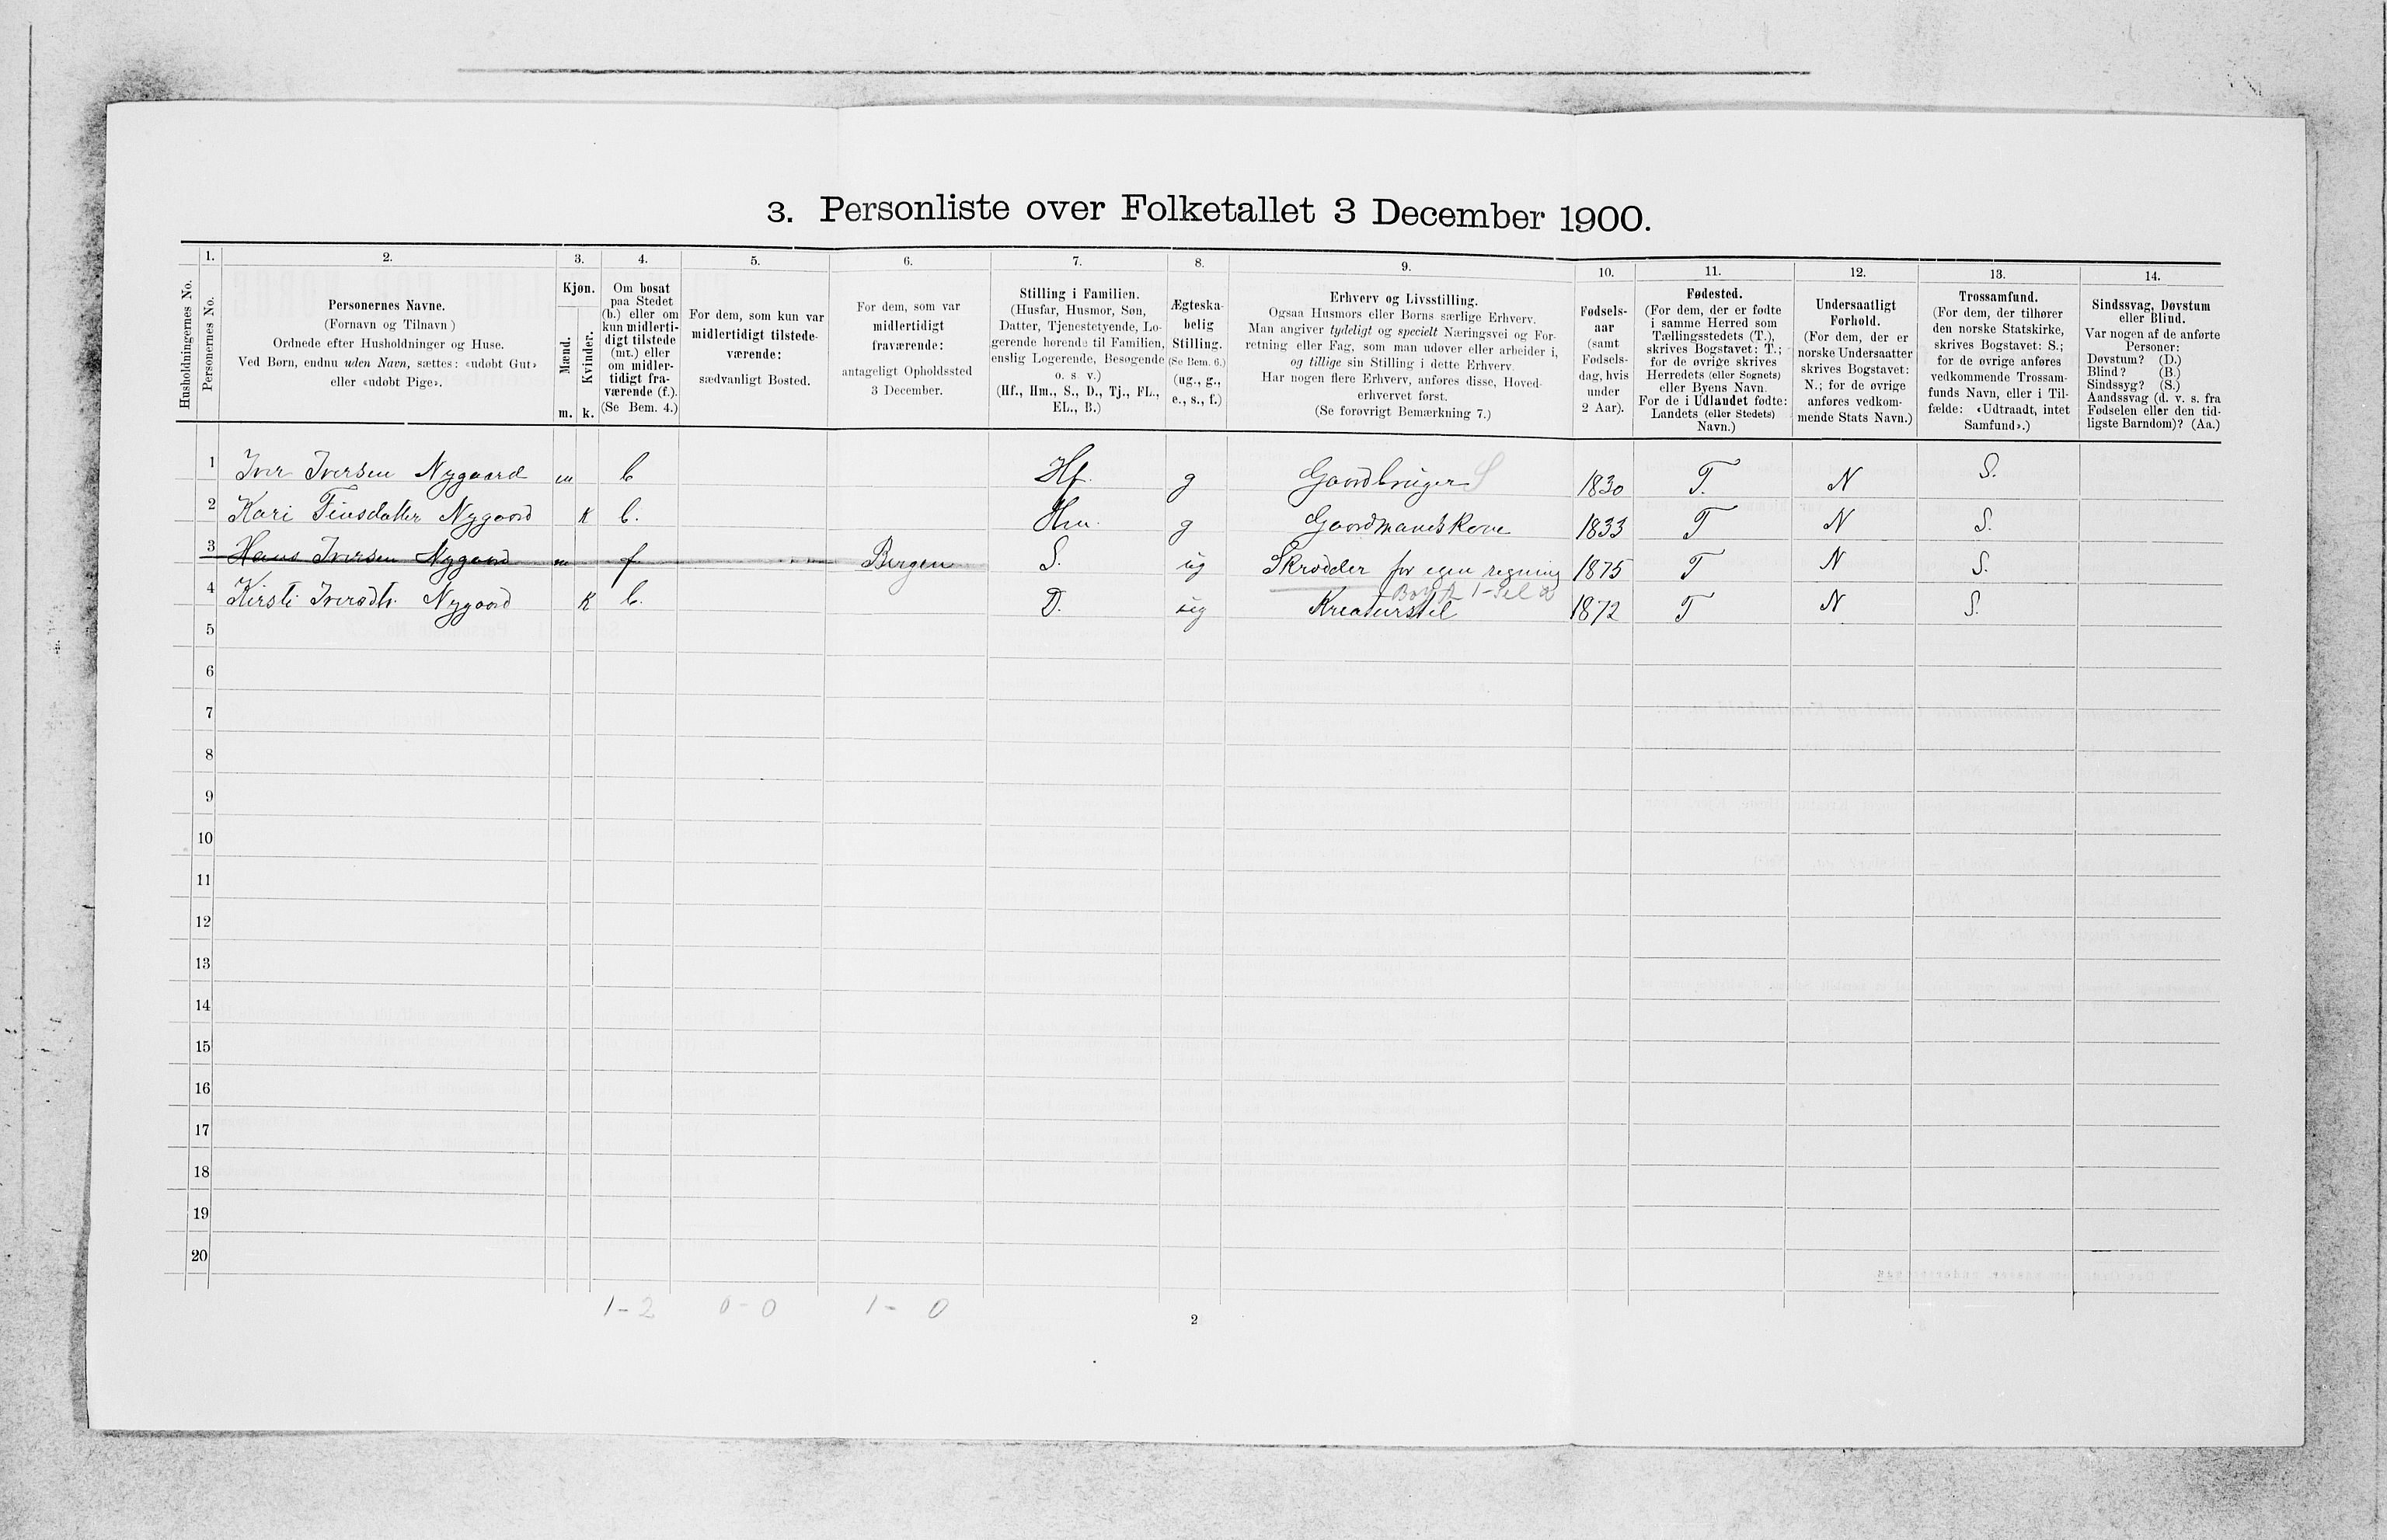 3. Personliste over Folketallet 3 December 1900.
Husholdningernes No.
1.
Personernes No.
2.
Personernes Navne.
(Fornavn og Tilnavn)
Ordnede efter Husholdninger og Huse.
Ved Børn, endnu uden Navn, sættes: «udøbt Gut»
eller «udøbt Pige».
3.
Kjøn.
Mænd.
Kvinder.
m. k.
4.
Om bosat
paa Stedet
(b.) eller om
kun midlerti-
digt tilstede
(mt.) eller
om midler-
tidigt fra-
værende (f.).
(Se Bem. 4.)
5.
For dem, som kun var
midlertidigt tilstede-
værende:
sædvanligt Bosted.
6.
For dem, som var
midlertidigt
fraværende:
antageligt Opholdssted
3 December.
7.
Stilling i Familien.
(Husfar, Husmor, Søn,
Datter, Tjenestetyende, Lo-
gerende hørende til Familien,
enslig Logerende, Besøgende
o. s. v.)
(Hf., Hm., S., D., Tj., FL.,
EL., B.)
8.
Ægteska-
belig
Stilling.
(Se Bem. 6.)
(ug., g.,
e., s., f.)
9.
Erhverv og Livsstilling.
Ogsaa Husmors eller Børns særlige Erhverv.
Man angiver tydeligt og specielt Næringsvei og For-
retning eller Fag, som man udøver eller arbeider i,
og tillige sin Stilling i dette Erhverv.
Har nogen flere Erhverv, anføres disse, Hoved-
erhvervet først.
(Se forøvrigt Bemærkning 7.)
10.
Fødsels-
aar
(samt
Fødsels-
dag, hvis
under
2 Aar).
11.
Fødested.
(For dem, der er fødte
i samme Herred som
Tællingsstedets (T.),
skrives Bogstavet: T.;
for de øvrige skrives
Herredets (eller Sognets)
eller Byens Navn.
For de i Udlandet fødte:
Landets (eller Stedets)
Navn.)
12.
Undersaatligt
Forhold.
(For dem, der er
norske Undersaatter
skrives Bogstavet:
N.; for de øvrige
anføres vedkom-
mende Stats Navn.)
13.
Trossamfund.
(For dem, der tilhører
den norske Statskirke,
skrives Bogstavet: S.;
for de øvrige anføres
vedkommende Trossam-
funds Navn, eller i Til-
fælde: «Udtraadt, intet
Samfund».)
14.
Sindssvag, Døvstum
eller Blind.
Var nogen af de anførte
Personer:
Døvstum? (D.)
Blind? (B.)
Sindssyg? (S.)
Aandssvag (d. v. s. fra
Fødselen eller den tid-
ligste Barndom)? (Aa.)
1 Iver Iversen Nygaard m b Hf. g Gaardbruger S 1830 T. N S.
2 Kari Finsdatter Nygaard k b. Hm. g Gaardmandskone 1833 T N S.
3 Hans Iversen Nygaard m f Bergen S. ug Skrædder for egen regning 1875 T N S.
4 Kirsti Iversdtr. Nygaard k b. D. ug Kreaturstel 1872 T N S.
5
6
7
8
9
10
11
12
13
14
15
16
17
18
19
20
1-2 0-0 1-0
2